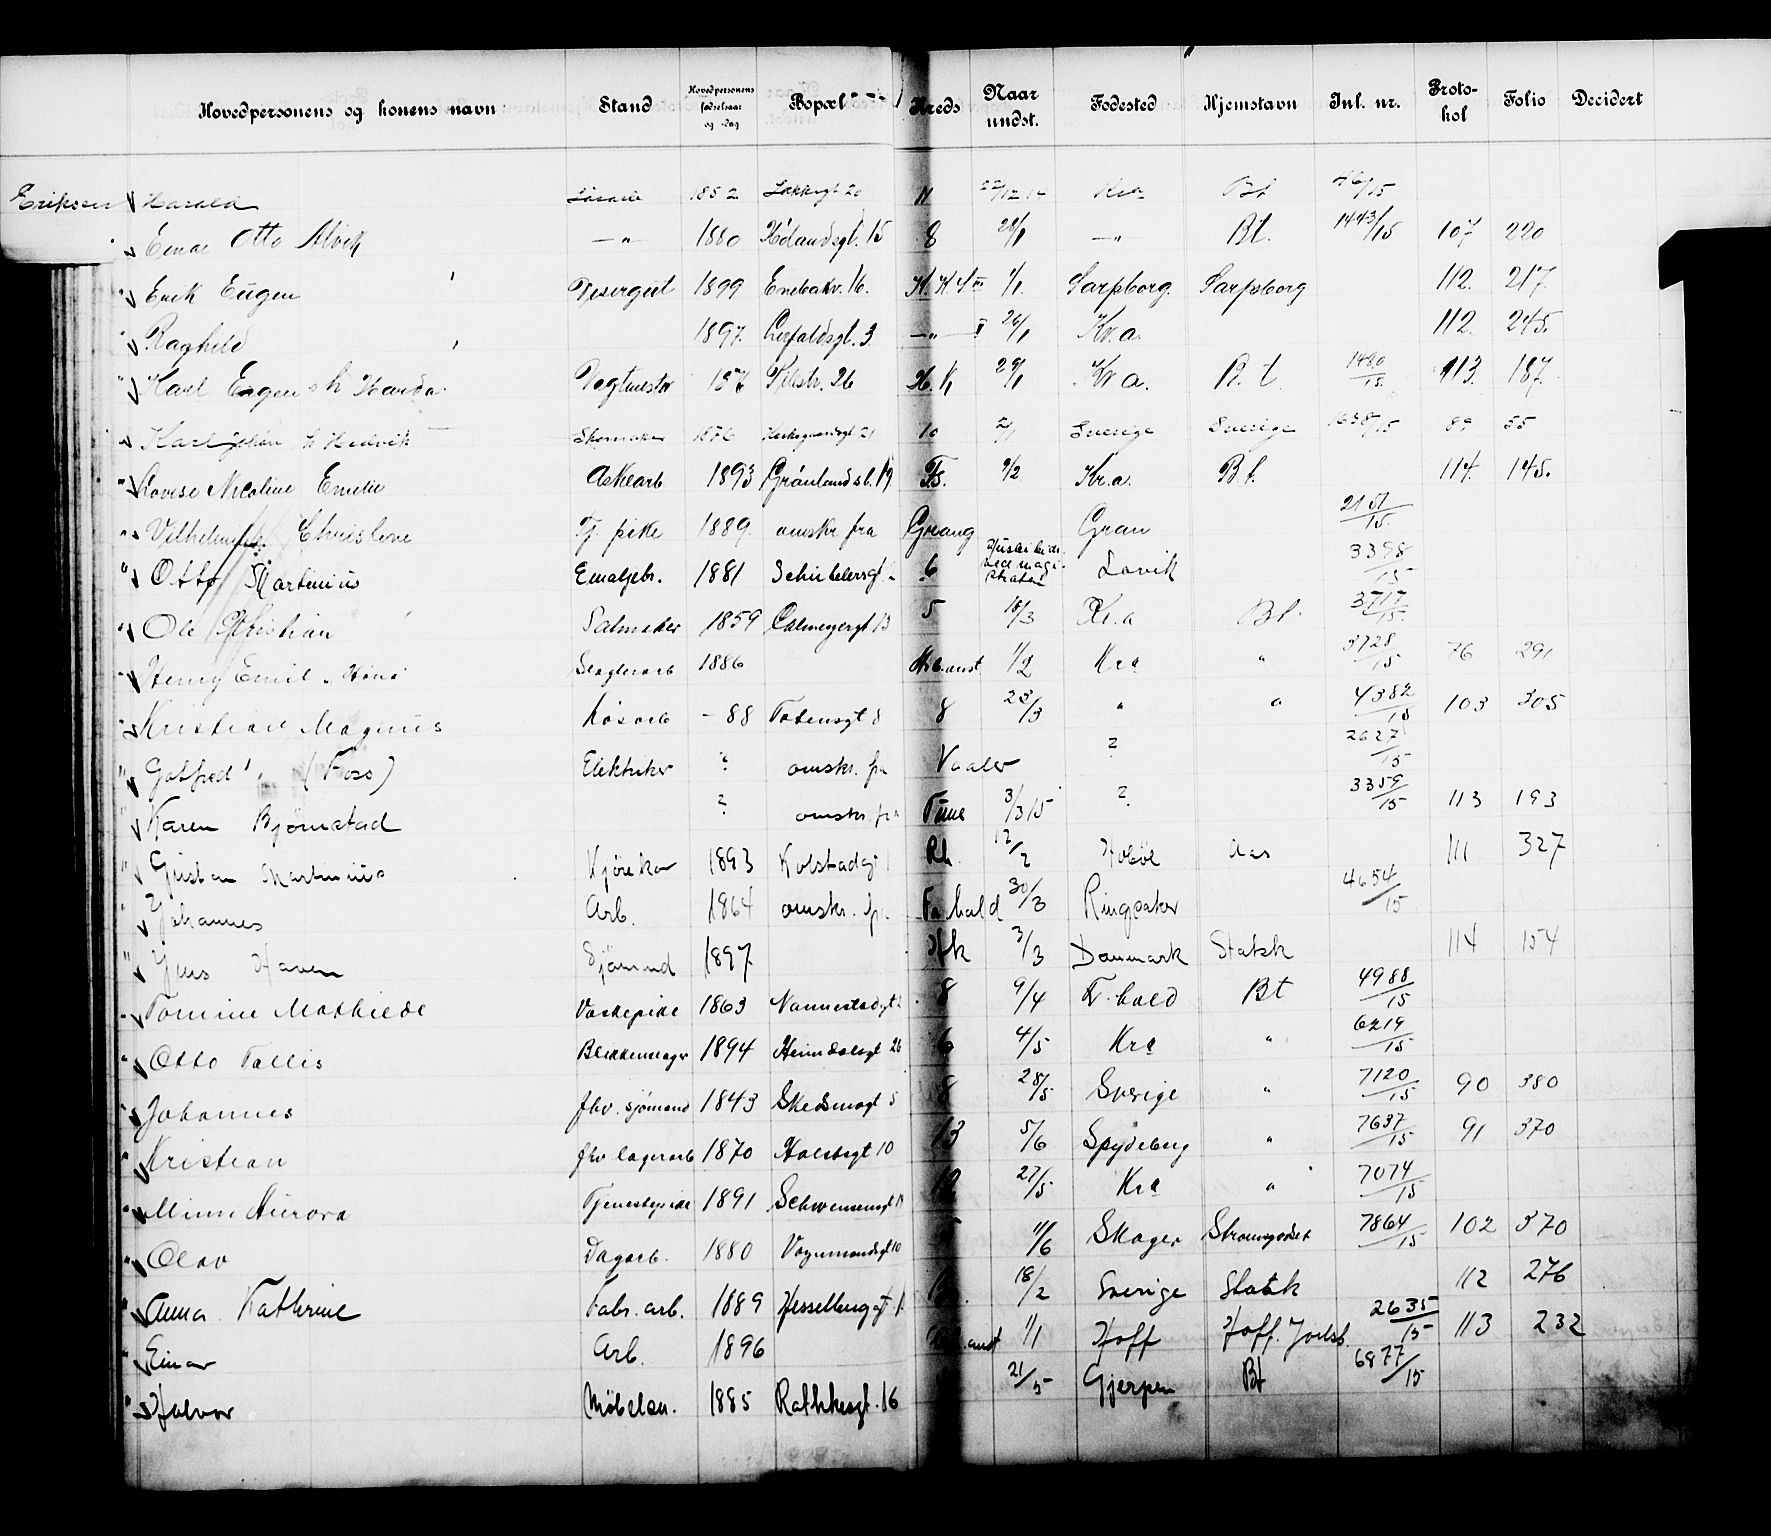 Hovedpersonens og konens navn Stand Hovedpersonens fødselsaar og -dag Bopæl Kreds Naar undst. Fødested Hjemstavn Inl. nr. Proto-kol Folio Decidert
Eriksen Harald Løsarb 1852 11 22/12 14 Kra Bt 46/15
" Einar Otto Alvik —"— 1880 Hølandsgt. 15 8 28/1 —"— Bt. 1443/15 107 220
" Erik Eugen Visergut 1899 Enebakv. 16. 1/1. Sarpsborg. Sarpsborg 112. 217.
" Raghild 1897. 3. —"— 26/1 Kr.a. 112. 245.
" Karl Eugen h Handa Vogtmestr 26 H.K 29/1 Kr a. B.t. 1480/15. 113. 187.
" Karl Johan h Hedvik Skomaker 1876 21 10 2/1 Sverige Sverige 1658/15 89 55
" Lovise Nicoline Emelie Askearb 1893 Grønlandsl. 19 Ts. 9/2 Kr.a. Bt. 114. 145.
" Vilhelmine Christine Tj. pike 1889. omskr. fra Greaag Gran 2151/15.
" Otto Martinius Emaljebr. 1881 Schübelersgt. 6 Lavik 3398/15
" Ole Kristian Salmaker 1859 Calmeyergt 13 5 18/3 Kr.a Bt. 3717/15.
" Henry Emil Slagterarb 1886 1/2 Kra " 3728/15 76 291
" Kristian Magnus Løsarb - 88 Totensgt 8 8 23/3 " " 4382/15 103 305
" Gotfred (Foss) Elektriker ? omskr. fra Vaaler ? 2627/15
" Karen Bjørnstad ? omskr. fra Tune 3/3 15 ? 3359/15 113 193
" Gustav Martinius Kjørekar 1893 Kolstadgt Rk. 12/2 Hobøl Aas 111 327
" Johannes Arb. 1864 omskr. fra Fa.hald 30/3 Ringsaker 4654/15
" Jens Haven Sjømand 1897. Hk 3/3 Danmark Statsk 114 154
" Tomine Mathilde Vaskepike 1863 Nannestadgt 8 9/4 F.hald Bt 4988/15
" Otto Tallis Blikkenslager 1894 Heimdalsgt 26 6 4/5 Kra " 6219/15
" Johannes fhv. sjømand 1843 Skedsmogt 5 8 28/5 Sverige " 7120/15 90 380
" Kristian fhv lagerarb 1870 Holsbygt 10 13 5/6 Spydeberg " 7637/15 91 370
" Minni Aurora Tjenestepike 1891 Schwensensgt 12 27/5 Kra " 7074/15
" Olav Dagarb. 1880 Vognmandsgt 10 11/6 Skoger Strømsgodset 7864/15 102 370
" Anna Kathrine Fabr. arb. 1889 Hesselberggt 18/2 Sverige Statsk 112 276
" Einar Arb. 1896 1/1 Hoff Hoff. 2635/15 113 232
" Halvor Møbelsn. 1885 Rathkesgt. 16 21/5 Gjerpen Bt 6877/15